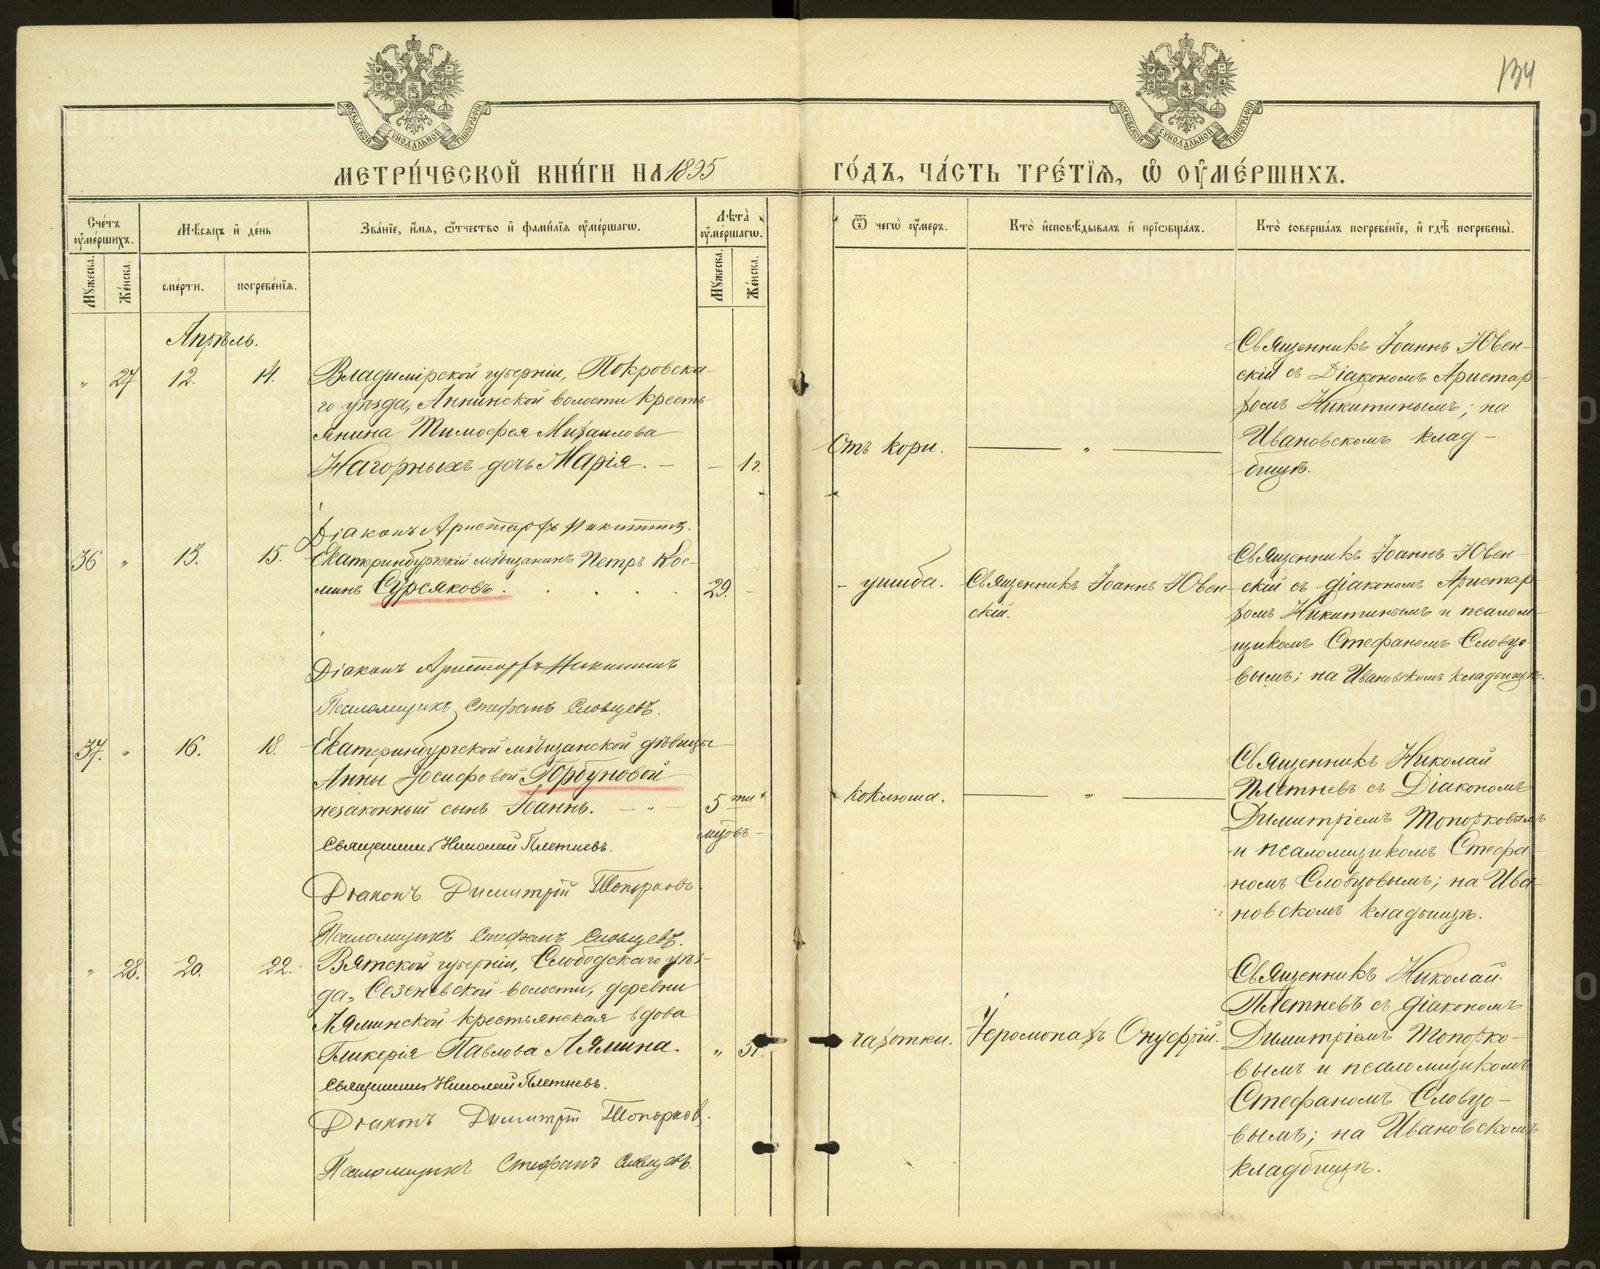 134
МЕТРИ́ЧЕСКОЙ КНИ́ГИ НА 1895 ГО́ДЪ, ЧА́СТЬ ТРЕ́ТІѦ, Ѿ ОУМЕ́РШИХЪ.
Сче́тъ оумершихъ.
Мѣсяцъ и день
Зва́ніе, и́мя, о́тчество и фами́лія оуме́ршагѡ.
Лѣта̀ оумершагѡ.
Ѿ чегѡ̀ оумеръ.
Кто̀ исповѣдывалъ и пріѡбщалъ.
Кто̀ соверша́лъ погребе́ніе, и гдѣ̀ погребены̀.
Мужеска.
Женска.
смерти.
погребенія.
Мужеска.
Женска.
Апрѣль.
„ 27 12. 14.
Владимірской губерніи, Покровска-
го уѣзда, Аннинской волости кресть
янина Тимофея Михаилова
Нагорныхъ дочь Марія. – – 1 г.
Отъ кори. „
Священникъ Іоаннъ Ювен-
скій съ Діакономъ Аристар-
хомъ Никитинымъ; на
Ивановскомъ клад-
бищѣ.
Діаконъ Аристархъ Никитинъ.
36 „ 13. 15.
Екатеринбургскій мѣщанинъ Петръ Кос-
минъ Сурсяковъ. 29. –
– ушиба.
Священникъ Іоаннъ Ювен-
скій.
Священникъ Іоаннъ Ювен-
скій съ діакономъ Аристар
хомъ Никитинымъ и псалом-
щикомъ Стефаномъ Словцо-
вымъ; на Ивановскомъ кладбищѣ.
Діаконъ Аристархъ Никитинъ
Псаломщикъ Стефанъ Словцевъ.
37. „ 16. 18.
Екатеринбургской мѣщанской дѣвицы
Анны Іосифовой Горбуновой
незаконный сынъ Іоаннъ. – „ – 5 ти
мцовъ –
коклюша. „
Священникъ Николай
Плетневъ съ Діакономъ
Димитріемъ Топорковымъ
и псаломщикомъ Стефа-
номъ Словцовымъ; на Ива-
новскомъ кладбищѣ.
Священникъ Николай Плетневъ.
Діаконъ Димитрій Топорковъ.
Псаломщикъ Стефанъ Словцевъ.
„ 28. 20. 22.
Вятской губерніи, Слободскаго уѣз-
да, Сезеневской волости, деревни
Лялинской крестьянская вдова
Гликерія Павлова Лялина. „ 51.
чахотки.
Іеромонахъ Онуфрій.
Священникъ Николай
Плетневъ съ діакономъ
Димитріемъ Топорко-
вымъ и псаломщикомъ
Стефаномъ Словцо-
вымъ; на Ивановскомъ
кладбищѣ.
Священникъ Николай Плетневъ.
Діаконъ Димитрій Топорков.
Псаломщикъ Стефанъ Словцевъ.